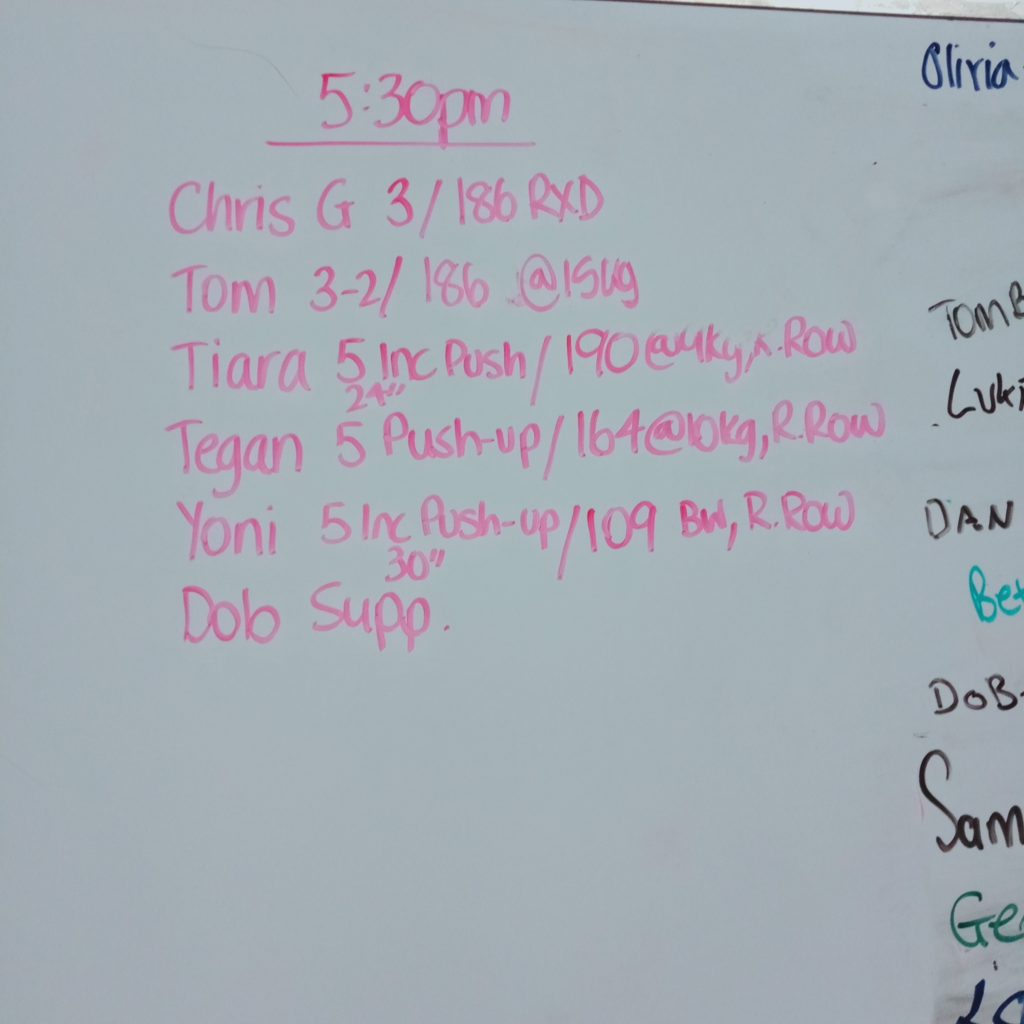 5:30pm
Chris G 3/186 RXD
Tom 3-2/186 @15kg
Tiara 5 Inc Push/190 @4kg, R.Row
24"
Tegan 5 Push-up/164@10kg, R.Row
Yoni 5 Inc Push-up/109 BW, R.Row
30"
Dob Supp.
Olivia
Tom B
Luk
DAN
Be
DOB-
Sam
Ge